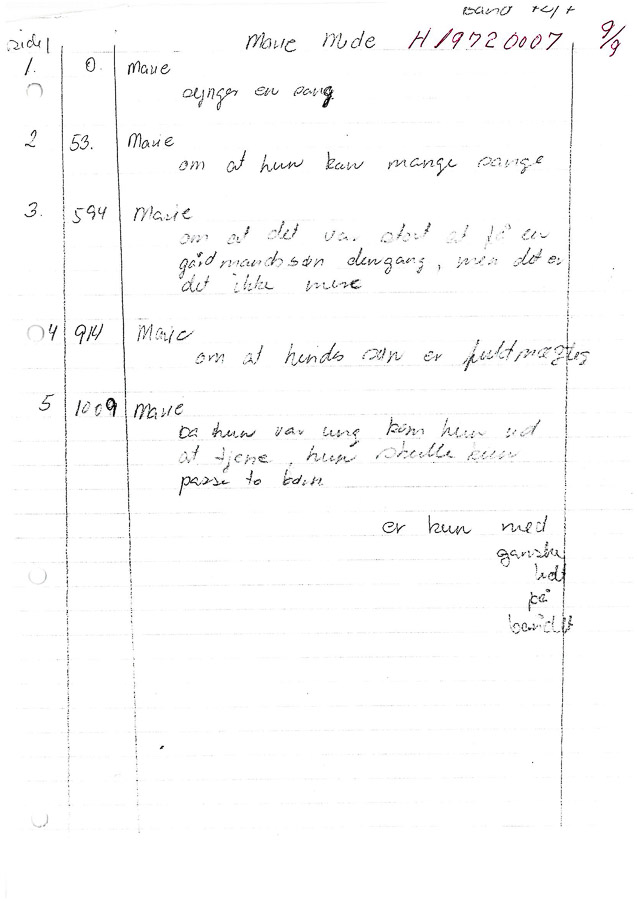 Bånd
side 1
Marie Mide H 19720007 9/9
1. 0. Marie
synger en sang
2 53. Marie
om at hun kan mange sange
3. 594 Marie
om at det var stort at få en
gårdmandssøn dengang, men det er
det ikke mere
4 914 Marie
om at hendes søn er
5 1009 Marie
Da hun var ung kom hun ud
at tjene, hun skulle kun
passe to
er kun med
ganske
lidt
på
båndet